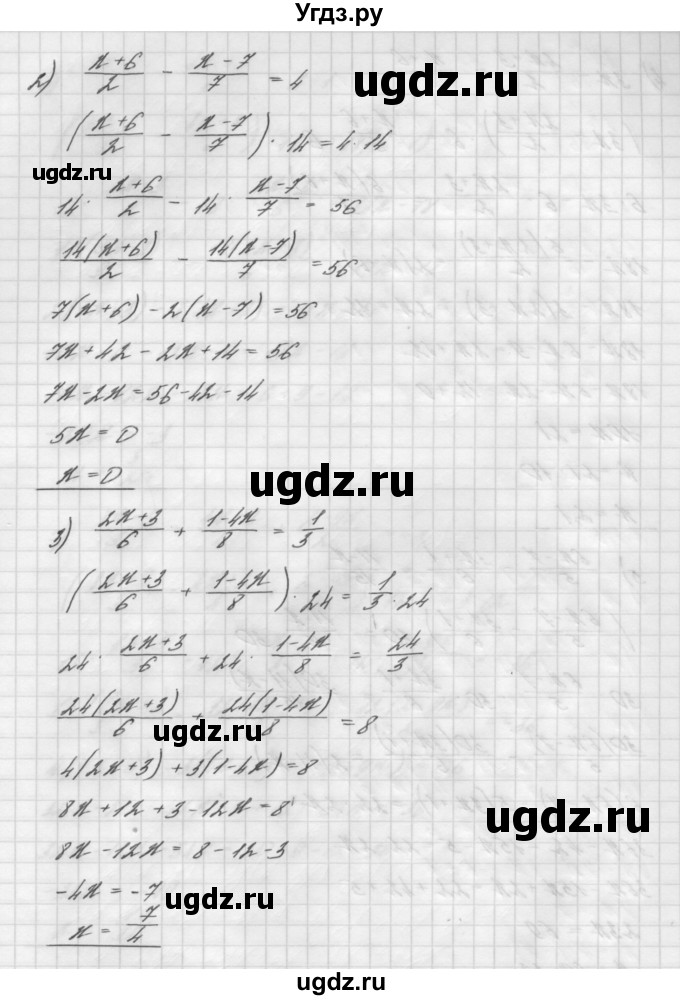 Угдз.ру
2) (x+6)/2 - (x-7)/7 = 4
ugdz.ru
((x+6)/2 - (x-7)/7) · 14 = 4 · 14
ugdz.ru
14 · (x+6)/2 - 14 · (x-7)/7 = 56
14(x+6)/2 - 14(x-7)/7 = 56
7(x+6) - 2(x-7) = 56
7x+42-2x+14=56
7x-2x=56-42-14
5x=0
x=0
ugdz.ru
3) (2x+3)/6 + (1-4x)/8 = 1/3
((2x+3)/6 + (1-4x)/8) · 24 = 1/3 · 24
24 · (2x+3)/6 + 24 · (1-4x)/8 = 24/3
24(2x+3)/6 + 24(1-4x)/8 = 8
ugdz.ru
4(2x+3)+3(1-4x)=8
8x+12+3-12x=8
ugdz.ru
8x-12x=8-12-3
-4x=-7
ugdz.ru
x=7/4
ugdz.ru